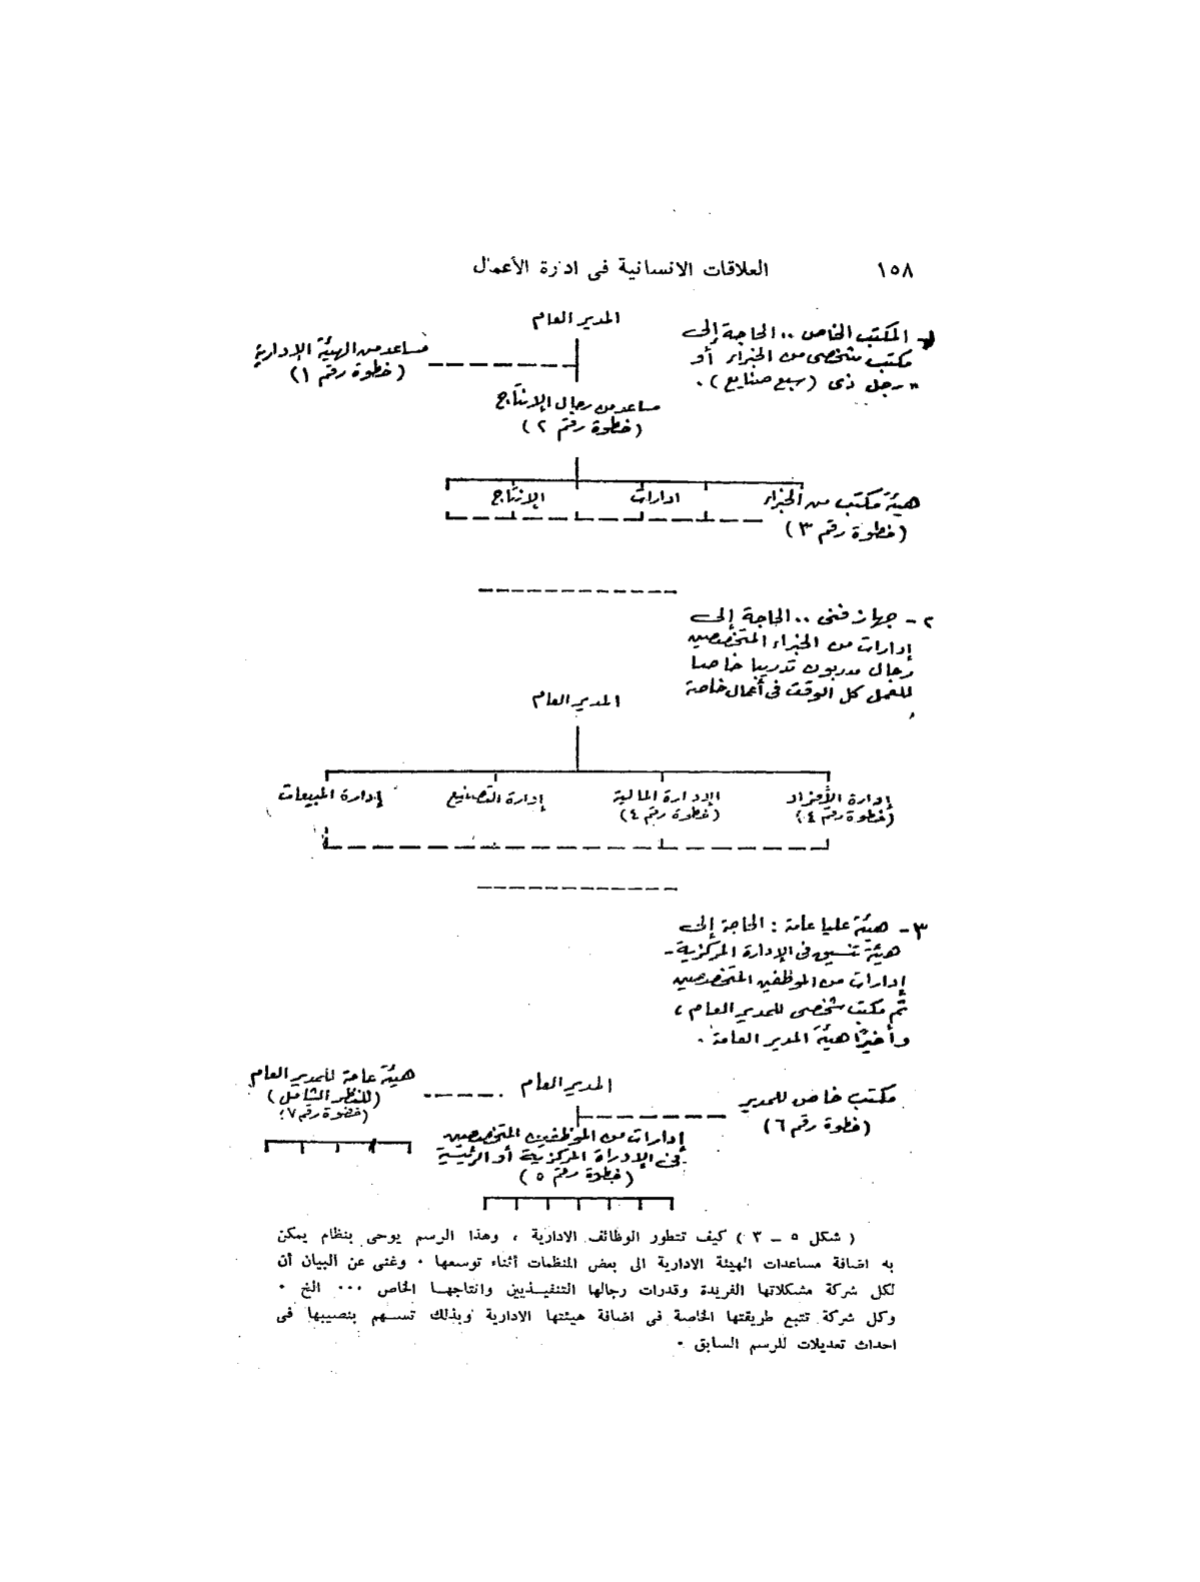 ١٥٨ العلاقات الانسانية فى ادارة الأعمال
١ - المكتب الخاص .. الحاجة إلى
مكتب شخصى من الخبراء أو
" رجل ذى (سبع صنايع) .
المدير العام
مساعد من الهيئة الإدارية
(خطوة رقم ١)
مساعد من رجال الإنتاج
(خطوة رقم ٢)
ادارات الإنتاج
هيئة مكتب من الخبراء
(خطوة رقم ٣)
٢ - جهاز فنى .. الحاجة إلى
إدارات من الخبراء المتخصصين
رجال مدربون تدريبا خاصا
للعمل كل الوقت فى أعمال خاصة
المدير العام
إدارة الأفراد
(خطوة رقم ٤)
الادارة المالية
(خطوة رقم ٤)
إدارة التصنيع
إدارة المبيعات
٣ - هيئة عليا عامة : الحاجة إلى
هيئة تنسيق فى الإدارة المركزية -
إدارات من الموظفين المتخصصين
ثم مكتب شخصى للمدير العام ،
وأخيرًا هيئة المدير العامة .
المدير العام
مكتب خاص للمدير
(خطوة رقم ٦)
هيئة عامة للمدير العام
(للنظر الشامل)
(خطوة رقم ٧)
إدارات من الموظفين المتخصصين
فى الإدراة المركزية أو الرئيسية
(خطوة رقم ٥)
( شكل ٥ – ٣ ) كيف تتطور الوظائف الادارية ، وهذا الرسم يوحى بنظام يمكن
به اضافة مساعدات الهيئة الادارية الى بعض المنظمات أثناء توسعها ٠ وغنى عن البيان أن
لكل شركة مشكلاتها الفريدة وقدرات رجالها التنفيـذيين وانتاجهـا الخاص ٠٠٠ الخ ٠
وكل شركة تتبع طريقتها الخاصة فى اضافة هيئتها الادارية وبذلك تسـهم بنصيبها فى
احداث تعديلات للرسم السابق ٠